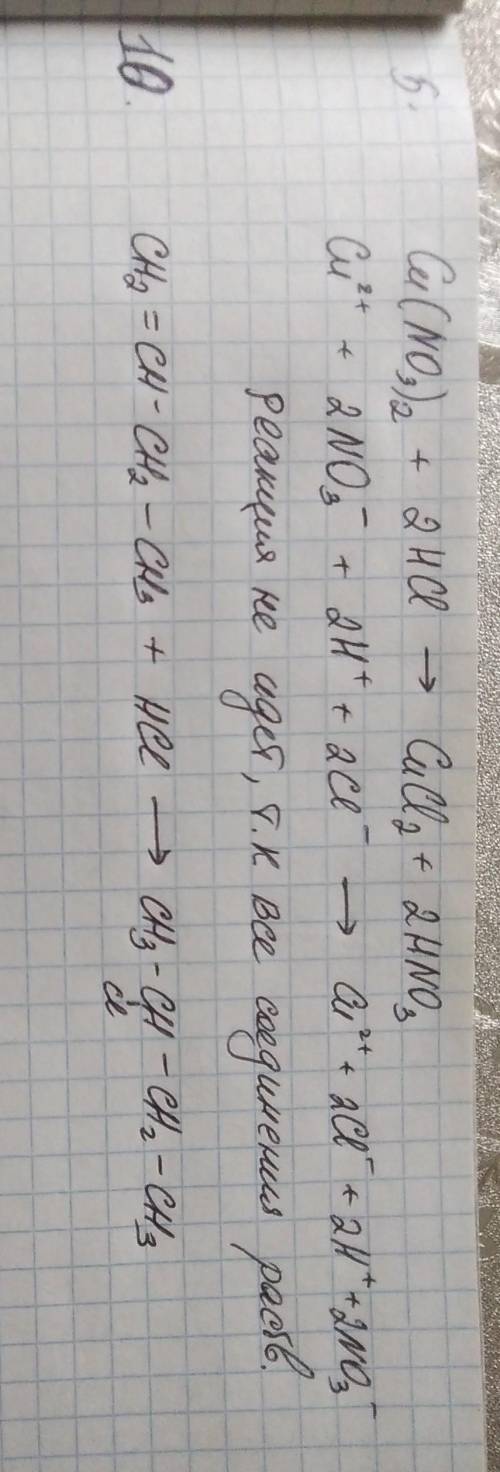 5. Cu(NO₃)₂ + 2HCl → CuCl₂ + 2HNO₃
Cu²⁺ + 2NO₃⁻ + 2H⁺ + 2Cl⁻ → Cu²⁺ + 2Cl⁻ + 2H⁺ + 2NO₃⁻
реакция не идет, т.к все соединения раств.
10. CH₂ = CH - CH₂ - CH₃ + HCl → CH₃ - CH - CH₂ - CH₃
Cl